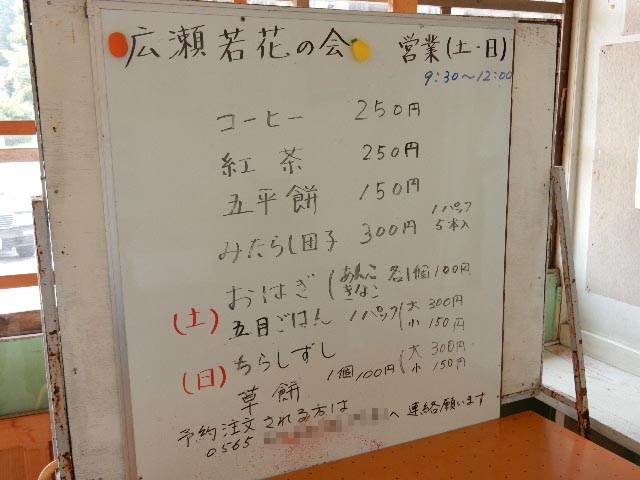 広瀬若花の会 営業(土・日)
9:30〜12:00
コーヒー 250円
紅茶 250円
五平餅 150円
みたらし団子 300円 1パック 5本入
おはぎ (あんこ きなこ 各1個 100円
(土) 五目ごはん 1パック (大 300円 小 150円
(日) ちらしずし (大 300円 小 150円
草餅 1個 100円
予約注文される方は
0565 へ 連絡願います